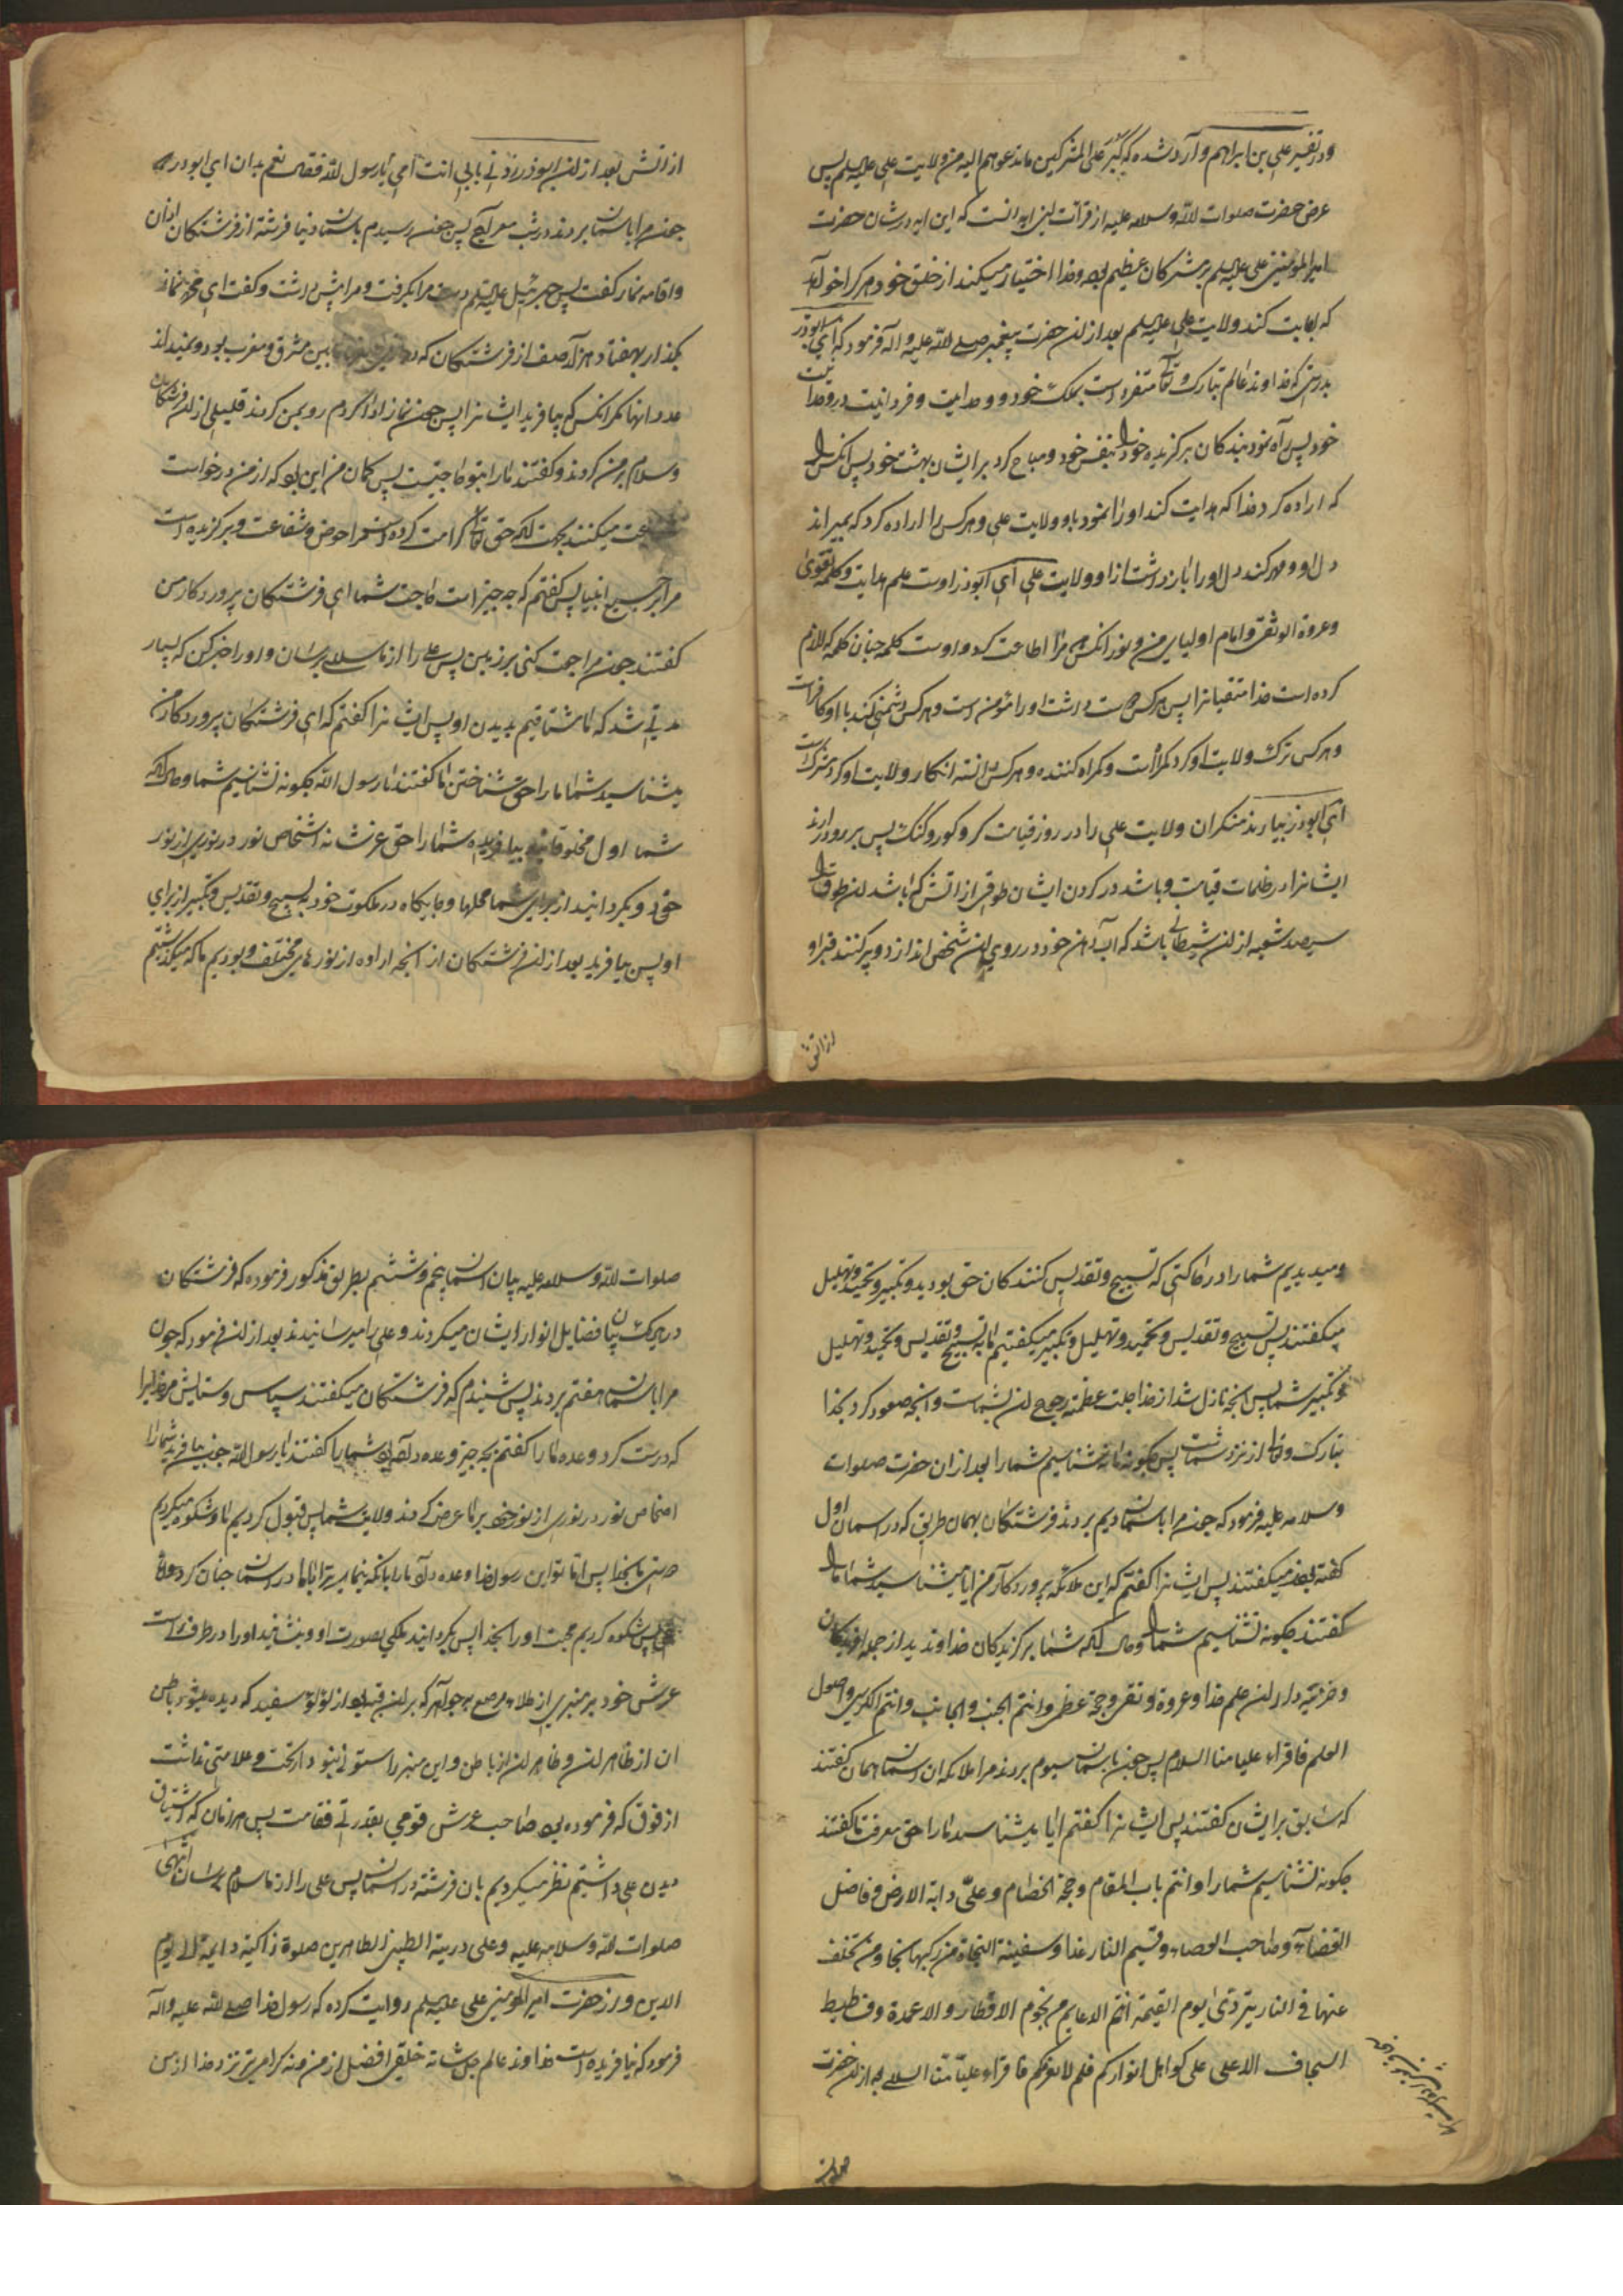 ودر تفسیر علی بن ابراهیم وارد شده که کبر علی المشرکین ما تدعوهم الیه من ولایت علی علیه السلم پس
غرض حضرت صلوات الله وسلامه علیه از قرآت این ایه انست که این ایه در شان حضرت
امیر المؤمنین علی علیه السلم بر مشرکان عظیم بود وخدا اختیار میکند از خلق خود هر کرا خواهد
که اجابت کند ولایت علی علیه السلم بعد از ان حضرت پیغمبر صلی الله علیه واله فرمود که ای ابوذر
بدرستی که خداوند عالم تبارک وتعالی متفرد است بملک خود ووحدانیت وفردانیت در وحدانیت
خود پس راه نمود بندکان برکزیده خود را بنفس خود ومباح کرد بر ایشان بهشت خود پس انکس را
که اراده کرد خدا که هدایت کند او را نمود باو ولایت علی وهر کس را اراده کرد که بمیراند
دل او ومهر کند دل او را باز داشت از او ولایت علی ای ابوذر اوست علم هدایت وکلمه تقوی
وعروة الوثقی وامام اولیای من ونور انکس که مرا اطاعت کرد واوست کلمه چنان کلمه که لازم
کرده است خدا متقیانرا پس هرکس دوست داشت او را مؤمن است وهر کس دشمنی کند با او کافر است
وهر کس ترک ولایت او کرد کمراه است وکمراه کننده وهر کس دانسته انکار ولایت او کرد مشرک است
ای ابوذر بیارند منکران ولایت علی را در روز قیامت کر وکور وکنک پس برو در ارند
ایشانرا در ظلمات قیامت وباشد در کردن ایشان طوقی از اتش که باشد ان طوق را
سیصد شعبه از ان شیطانی باشد که اب دهن خود در روی ان شخص اندازد وپر کنند قبر او
از اتش
از اتش بعد از ان ابوذر زدنی بابی انت وامی یا رسول الله فقال نعم بدان ای ابوذر که
چون مرا باسمان بردند در شب معراج پس چون رسیدم باسمان دنیا فرشته از فرشتکان اذان
واقامه نماز کفت پس جبرئیل علیه السلم دست مرا بکرفت ومرا پیش داشت وکفت ای محمد نماز
بکذار بهفتاد هزار صف از فرشتکان که در مابین مشرق ومغرب بود ونمیداند
عدد انها مکر انکس که بیافرید ایشانرا پس چون نماز ادا کردم رو بمن کردند قلیلی از ان فرشتکان
وسلام بر من کردند وکفتند ما را بتو حاجتیست پس کمان من این بود که از من درخواست
شفاعت میکنند بجهت انکه حق تعالی کرامت کرده است مرا حوض وشفاعت وبرکزیده است
مرا بر جمیع انبیا پس کفتم که چه چیز است حاجت شما ای فرشتکان پروردکار من
کفتند چون مراجعت کنی بر زمین پس علی را از ما سلام برسان واو را خبر کن که بسیار
مدتی شد که ما مشتاقیم بدیدن او پس ایشانرا کفتم که ای فرشتکان پروردکار من
میشناسید شما ما را حق شناختن ما کفتند یا رسول الله چکونه نشناسیم شما وحال انکه
شما اول مخلوقاتید بیافریده شما را حق عز شانه اشخاص نور در نوری از نور
خود وبکردانید از برای شما محلها وجایکاه در ملکوت خود بتسبیح وتقدیس وتکبیر از برای
او پس بیافرید بعد از ان فرشتکان از انچه اراده از نورهای مختلف وبودیم ما که میکذشتیم
ومیدیدیم شما را در حالتی که تسبیح وتقدیس کنندکان حق بودید وتکبیر وتحمید وتهلیل
میکفتند پس تسبیح وتقدیس وتحمید وتهلیل وتکبیر میکفتیم ما به تسبیح وتقدیس وتحمید وتهلیل
وتکبیر شما پس انچه نازل شد از خدا جلت عظمته رجوع ان بشماست وانچه صعود کرد بخدا
تبارک وتعالی از نزد شماست پس چکونه ما نشناسیم شما را بعد از ان حضرت صلوات
وسلامه علیه فرمود که چون مرا باسمان دیم بردند فرشتکان بهمان طریق که در اسمان اول
کفته بودند میکفتند پس ایشانرا کفتم که این ملائکه پروردکار من ایا میشناسید شما ما را
کفتند چکونه نشناسیم شما را وحال انکه شما برکزیدکان خداوندید از جمله افریدکان
وخزینه داران علم خدا وعروة وثقی وحجة عظمی وانتم الجنب والجانب وانتم الکرسی واصول
العلم فاقراء علیا منا السلام پس چون باسمان سیوم بردند مرا ملائکه ان اسمان همان کفتند
که سابق بر ایشان کفتند پس ایشانرا کفتم ایا میشناسید ما را حق معرفت ما کفتند
چکونه نشناسیم شما را وانتم باب المقام وحجة الخصام وعلی دابة الارض وفاصل
القضاء وصاحب العصاء وقسیم النار غدا وسفینة النجاة من رکبها نجا ومن تخلف
عنها فی النار یتردی یوم القیمة انتم الدعایم من نجوم الاقطار والاعمدة وفساطیط
السجاف الاعلی علی کواهل انوارکم فلم لا نعرفکم فاقراء علیا منا السلام بعد از ان حضرت
صلوات
صلوات الله وسلامه علیه بیان اسمان پنجم وششم بطریق مذکور فرموده که فرشتکان
در هریک بیان فضایل انوار ایشان میکردند وعلی را میرسانیدند بعد از ان فرمود که چون
مرا باسمان هفتم بردند پس شنیدم که فرشتکان میکفتند سپاس وستایش مر خدایرا
که درست کرد وعده ما را کفتم بچه چیز وعده داده بود شما را کفتند یا رسول الله چون بیافرید شما را
اشخاص نور در نوری از نور خود بر ما عرض کردند ولایت شما پس قبول کردیم ما وشکوه میکردیم
محبت بخدا پس اما تو این رسول خدا وعده داد ما را بانکه بنماید ترا باما در اسمان چنان کرد واما
علی پس شکوه کردیم محبت او را بخدا پس بکردانید ملکی بصورت او وبنشانید او را در طرف راست
عرش خود بر منبری از طلا مرصع بجواهر که بر ان قبه بود از لؤلؤ سفید که دیده میشود باطن
ان از ظاهر ان وظاهر ان از باطن واین منبر را ستونی نبود از تحت وعلامتی نداشت
از فوق که فرموده بود صاحب عرش قومی بقدرتی فقامت پس هر زمان که اشتیاق
دیدن علی داشتیم نظر میکردیم بان فرشته در اسمان پس علی را از ما سلام برسان انتهی
صلوات الله وسلامه علیه وعلی ذریته الطیبین الطاهرین صلوة زاکیة دایمة الی یوم
الدین ودر حضرت امیر المؤمنین علی علیه السلم روایت کرده که رسول خدا صلی الله علیه واله
فرمود که نیافریده است خداوند عالم جل شانه خلقی افضل از من ونه کرامی تر نزد خدا از من